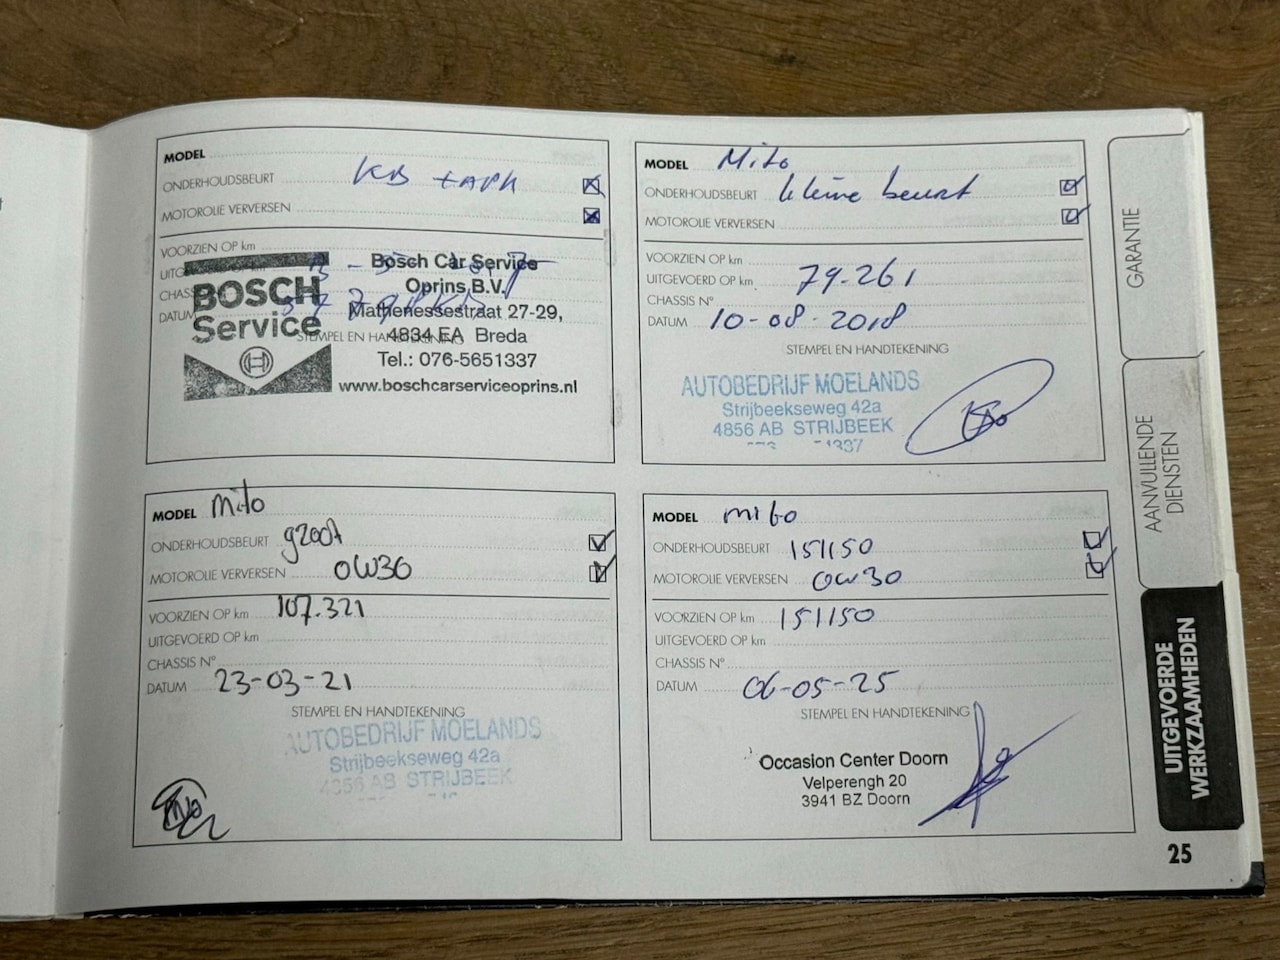 MODEL
ONDERHOUDSBEURT KB + APK
MOTOROLIE VERVERSEN
VOORZIEN OP km
DATUM
STEMPEL EN HANDTEKENING
BOSCH
Service
Bosch Car Service
Oprins B.V.
Mathenessestraat 27-29,
4834 EA Breda
Tel.: 076-5651337
www.boschcarserviceoprins.nl
MODEL Mito
ONDERHOUDSBEURT kleine beurt
MOTOROLIE VERVERSEN
VOORZIEN OP km
UITGEVOERD OP km 79.261
CHASSIS N°
DATUM 10-08-2018
STEMPEL EN HANDTEKENING
AUTOBEDRIJF MOELANDS
Strijbeekseweg 42a
4856 AB STRIJBEEK
MODEL Mito
ONDERHOUDSBEURT groot
MOTOROLIE VERVERSEN 0W30
VOORZIEN OP km 107.321
UITGEVOERD OP km
CHASSIS N°
DATUM 23-03-21
STEMPEL EN HANDTEKENING
AUTOBEDRIJF MOELANDS
Strijbeekseweg 42a
4856 AB STRIJBEEK
MODEL mito
ONDERHOUDSBEURT 151150
MOTOROLIE VERVERSEN 0W30
VOORZIEN OP km 151150
UITGEVOERD OP km
CHASSIS N°
DATUM 06-05-25
STEMPEL EN HANDTEKENING
Occasion Center Doorn
Velperengh 20
3941 BZ Doorn
GARANTIE
AANVULLENDE
DIENSTEN
UITGEVOERDE
WERKZAAMHEDEN
25